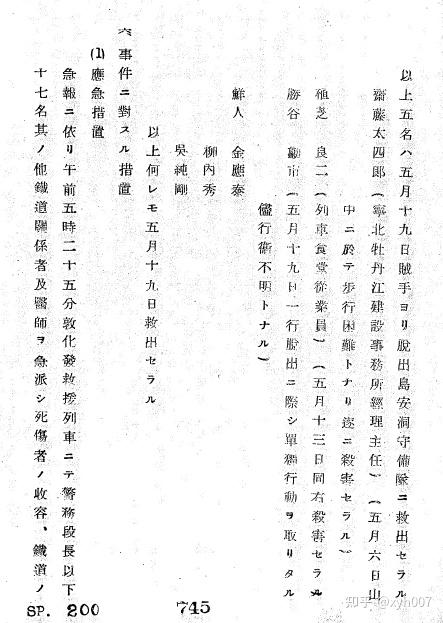 以上五名ハ五月十九日賊手ヨリ脫出島安洞守備隊ニ救出セラル
齋藤太四郎(寧北牡丹江建設事務所經理主任)(五月六日山
中ニ於テ步行困難トナリ遂ニ殺害セラル)
植芝 良二(列車食堂從業員)(五月十三日同右殺害セラル
勝谷 勸市(五月十九日一行脫出ニ際シ單獨行動ヲ取リタル
儘行衞不明トナル)
鮮人 金應泰
柳內秀
吳純剛
以上何レモ五月十九日救出セラル
六、事件ニ對スル措置
(1)應急措置
急報ニ依リ午前五時二十五分敦化發救援列車ニテ警務段長以下
十七名其ノ他鐵道關係者及醫師ヲ急派シ死傷者ノ收容、鐵道ノ
SP. 200
745
知乎 @xyh007